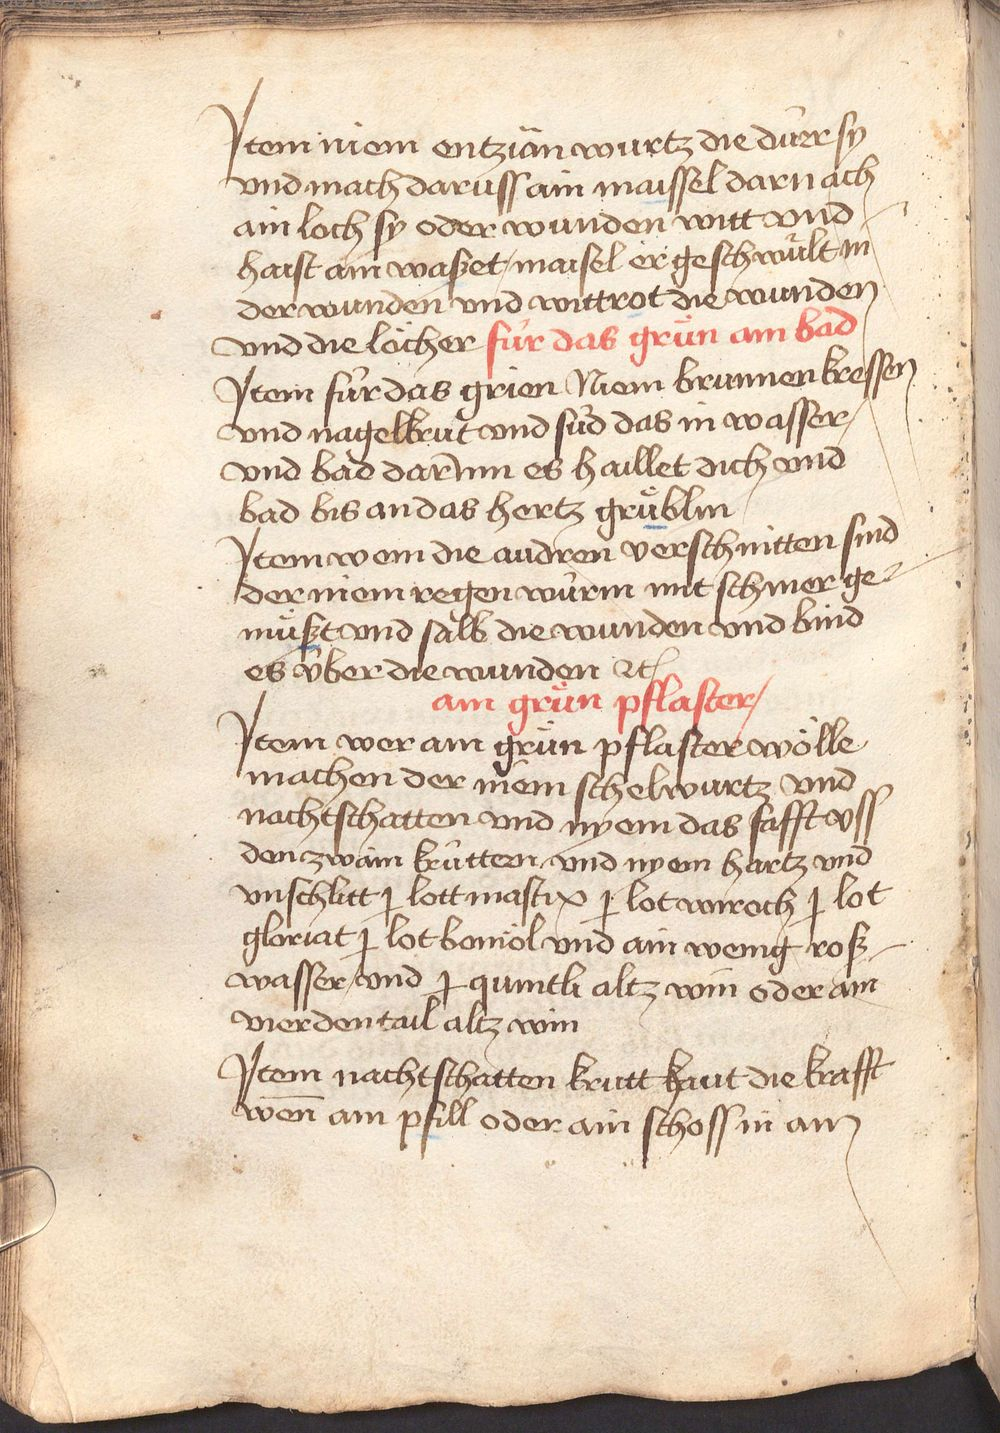 Item niem entziän wurtz die dürr sy
vnd mach daruss ain maissel darnach
ain loch sy oder wunden witt vnd
haist ain waßet maisel er geschwült in
der wunden vnd wittrot die wunden
vnd die löcher für das grün ain bad
Item für das grien Niem brunnen kressen
vnd nagelkrut vnd süd das in wasser
vnd bad darinn es haillet dich vnd
bad bis an das hertz grüblin
Item wem die audren verschnitten sind
der niem regen würm mit schmer ge
müßt vnd salb die wunden vnd bind
es über die wunden etc
ain grün pflaster
Item wer ain grün pflaster wölle
machen der niem schelwurtz vnd
nachtschatten vnd nyem das safft vss
den zwain krüttern vnd nyem hartz vnd
vnschlitt j lott mastix j lot wiroch j lot
gloriat j lot bomöl vnd ain wenig roß
wasser vnd j quintli altz win oder ain
vierdentail altz win
Item nachtschatten krutt haut die krafft
wen̄ ain pfill oder ain schoss in ain